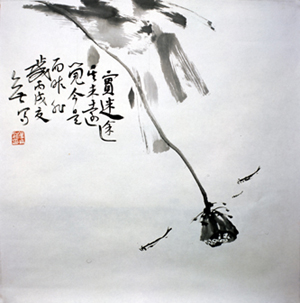 實迷途
其未遠
覺今是
而昨非
歲丙戌夏
寫